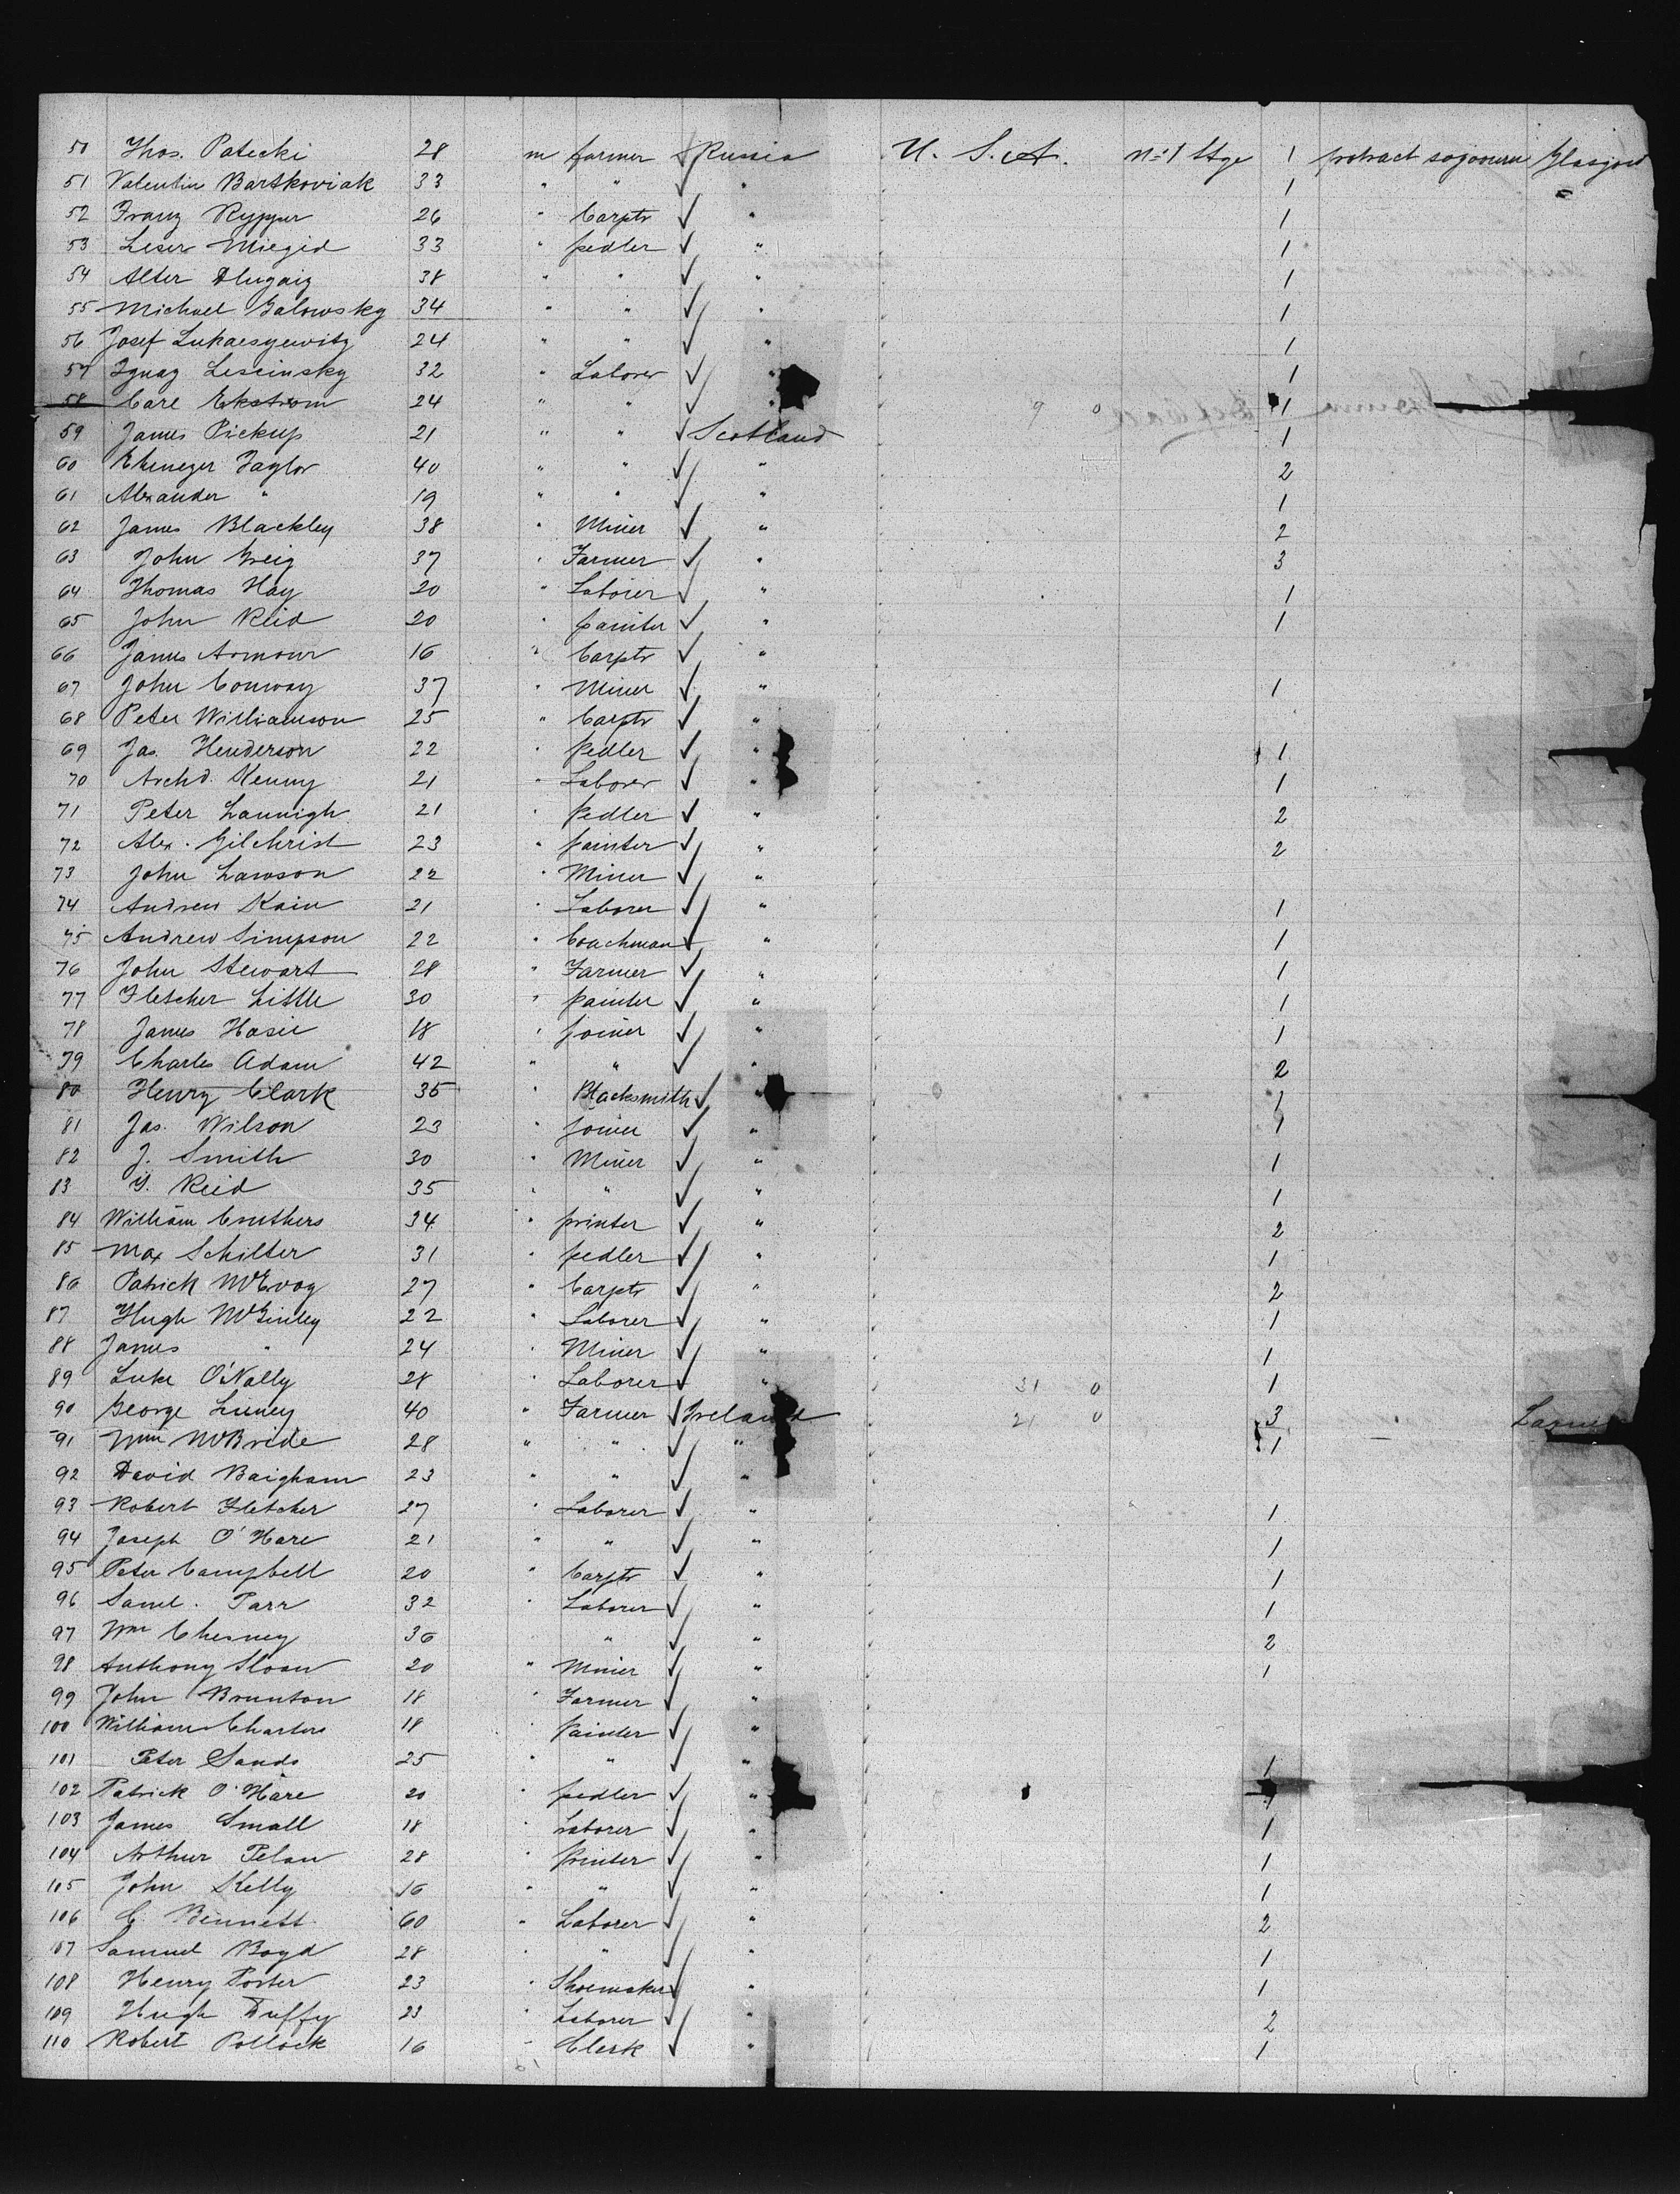 50 Thos. Patecki 28 m farmer ✓ Russia U. S. A. No 1 Stge 1 protract sojourn Glasgow
51 Valentin Bartkoviak 33 " " ✓ " 1 "
52 Franz Ryppur 26 " Carptr ✓ " 1
53 Leser Miegid 33 " pedler ✓ " 1
54 Alter Dlugaiz 38 " " ✓ " 1
55 Michael Galowsky 34 " " ✓ " 1
56 Josef Lukaesyewitz 24 " " ✓ " 1
57 Ignaz Lescinsky 32 " Laborer ✓ " 1
58 Carl Ekstrom 24 " " ✓ 9 0 1
59 James Pickup 21 " " ✓ Scotland 1
60 Ebenezer Taylor 40 " " ✓ " 2
61 Alexander " 19 " " ✓ " 1
62 James Blackley 38 " Miner ✓ " 2
63 John Greig 37 " Farmer ✓ " 3
64 Thomas Hay 20 " Laborer ✓ " 1
65 John Reid 20 " painter ✓ " 1
66 James Armour 16 " Carptr ✓ "
67 John Conway 37 " Miner ✓ " 1
68 Peter Williamson 25 " Carptr ✓ "
69 Jas. Henderson 22 " Pedler ✓ " 1
70 Archd. Kenny 21 " Laborer ✓ " 1
71 Peter Lannigh 21 " Pedler ✓ " 2
72 Alex. Gilchrist 23 " painter ✓ " 2
73 John Lawson 22 " Miner ✓ "
74 Andrew Kain 21 " Laborer ✓ " 1
75 Andrew Simpson 22 " Coachman ✓ " 1
76 John Stewart 28 " Farmer ✓ " 1
77 Fletcher Little 30 " painter ✓ " 1
78 James Hosie 18 " joiner ✓ " 1
79 Charles Adam 42 " " ✓ " 2
80 Henry Clark 35 " Blacksmith ✓ " 1
81 Jas. Wilson 23 " joiner ✓ " 1
82 J. Smith 30 " Miner ✓ " 1
83 Y. Reid 35 " " ✓ " 1
84 William Cruthers 34 " printer ✓ " 2
85 Max Schilter 31 " pedler ✓ " 1
86 Patrick McEvoy 27 " Carptr ✓ " 2
87 Hugh McGinley 22 " Laborer ✓ " 1
88 James " 24 " Miner ✓ " 1
89 Luke O'Nally 28 " Laborer ✓ " 31 0 1
90 George Liney 40 " Farmer ✓ Ireland 21 0 3 Larne
91 Wm McBride 28 " " ✓ " 1
92 David Baigham 23 " " ✓ "
93 Robert Fletcher 27 " Laborer ✓ " 1
94 Joseph O'Hare 21 " " ✓ " 1
95 Peter Campbell 20 " Carptr ✓ " 1
96 Saml. Parr 32 " Laborer ✓ " 1
97 Wm Chesney 36 " ✓ " 2
98 Anthony Sloan 20 " Miner ✓ " 1
99 John Brunton 18 " Farmer ✓ "
100 William Charters 18 " Painter ✓ "
101 Peter Sands 25 " " ✓ " 1
102 Patrick O'Hare 20 " pedler ✓ " 1
103 James Small 18 " Laborer ✓ " 1
104 Arthur Pelan 28 " Printer ✓ " 1
105 John Kelly 16 " " ✓ " 1
106 C. Bennett 60 " Laborer ✓ " 2
107 Samuel Boyd 28 " " ✓ " 1
108 Henry Porter 23 " Shoemaker ✓ " 1
109 Hugh Duffy 23 " Laborer ✓ " 2
110 Robert Pollock 16 " Clerk ✓ " 1